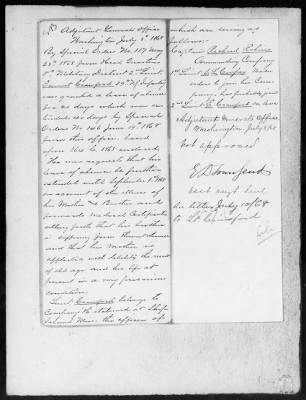 Adjutant General's Office
Washington July 8th 1868
By Special Orders No. 117 May
23d 1868 from Head Quarters
4th Military District 2d Lieut
Emmet Crawford 39th Inf
was granted a leave of absence
for 20 days which was ex-
tended 20 days by Special
Orders No 146 June 19th 1868
from this office, based
upon
He now requests that his
leave of absence be further
extended until September 1st 1868
on account of the illness of
his Mother & Brother and
forwards Medical Certificate
setting forth that his brother
is suffering from
and that his Mother is
afflicted with debility the result
of old age and his life at
present is in a very precarious
condition.
Lieut Crawford belongs to
Company the stationed at Ship
Island Miss. the officers of
which are serving as
follows:
Captain
Commanding Company
1st Lieut Under
orders to join his Com-
pany has probably joined
2nd Lieut E. Crawford on leave
Adjutant General's Office
Washington July 8 1868
Not approved
E D Townsend
Asst Adjt Genl
his letter July 10/68
to Lt Crawford